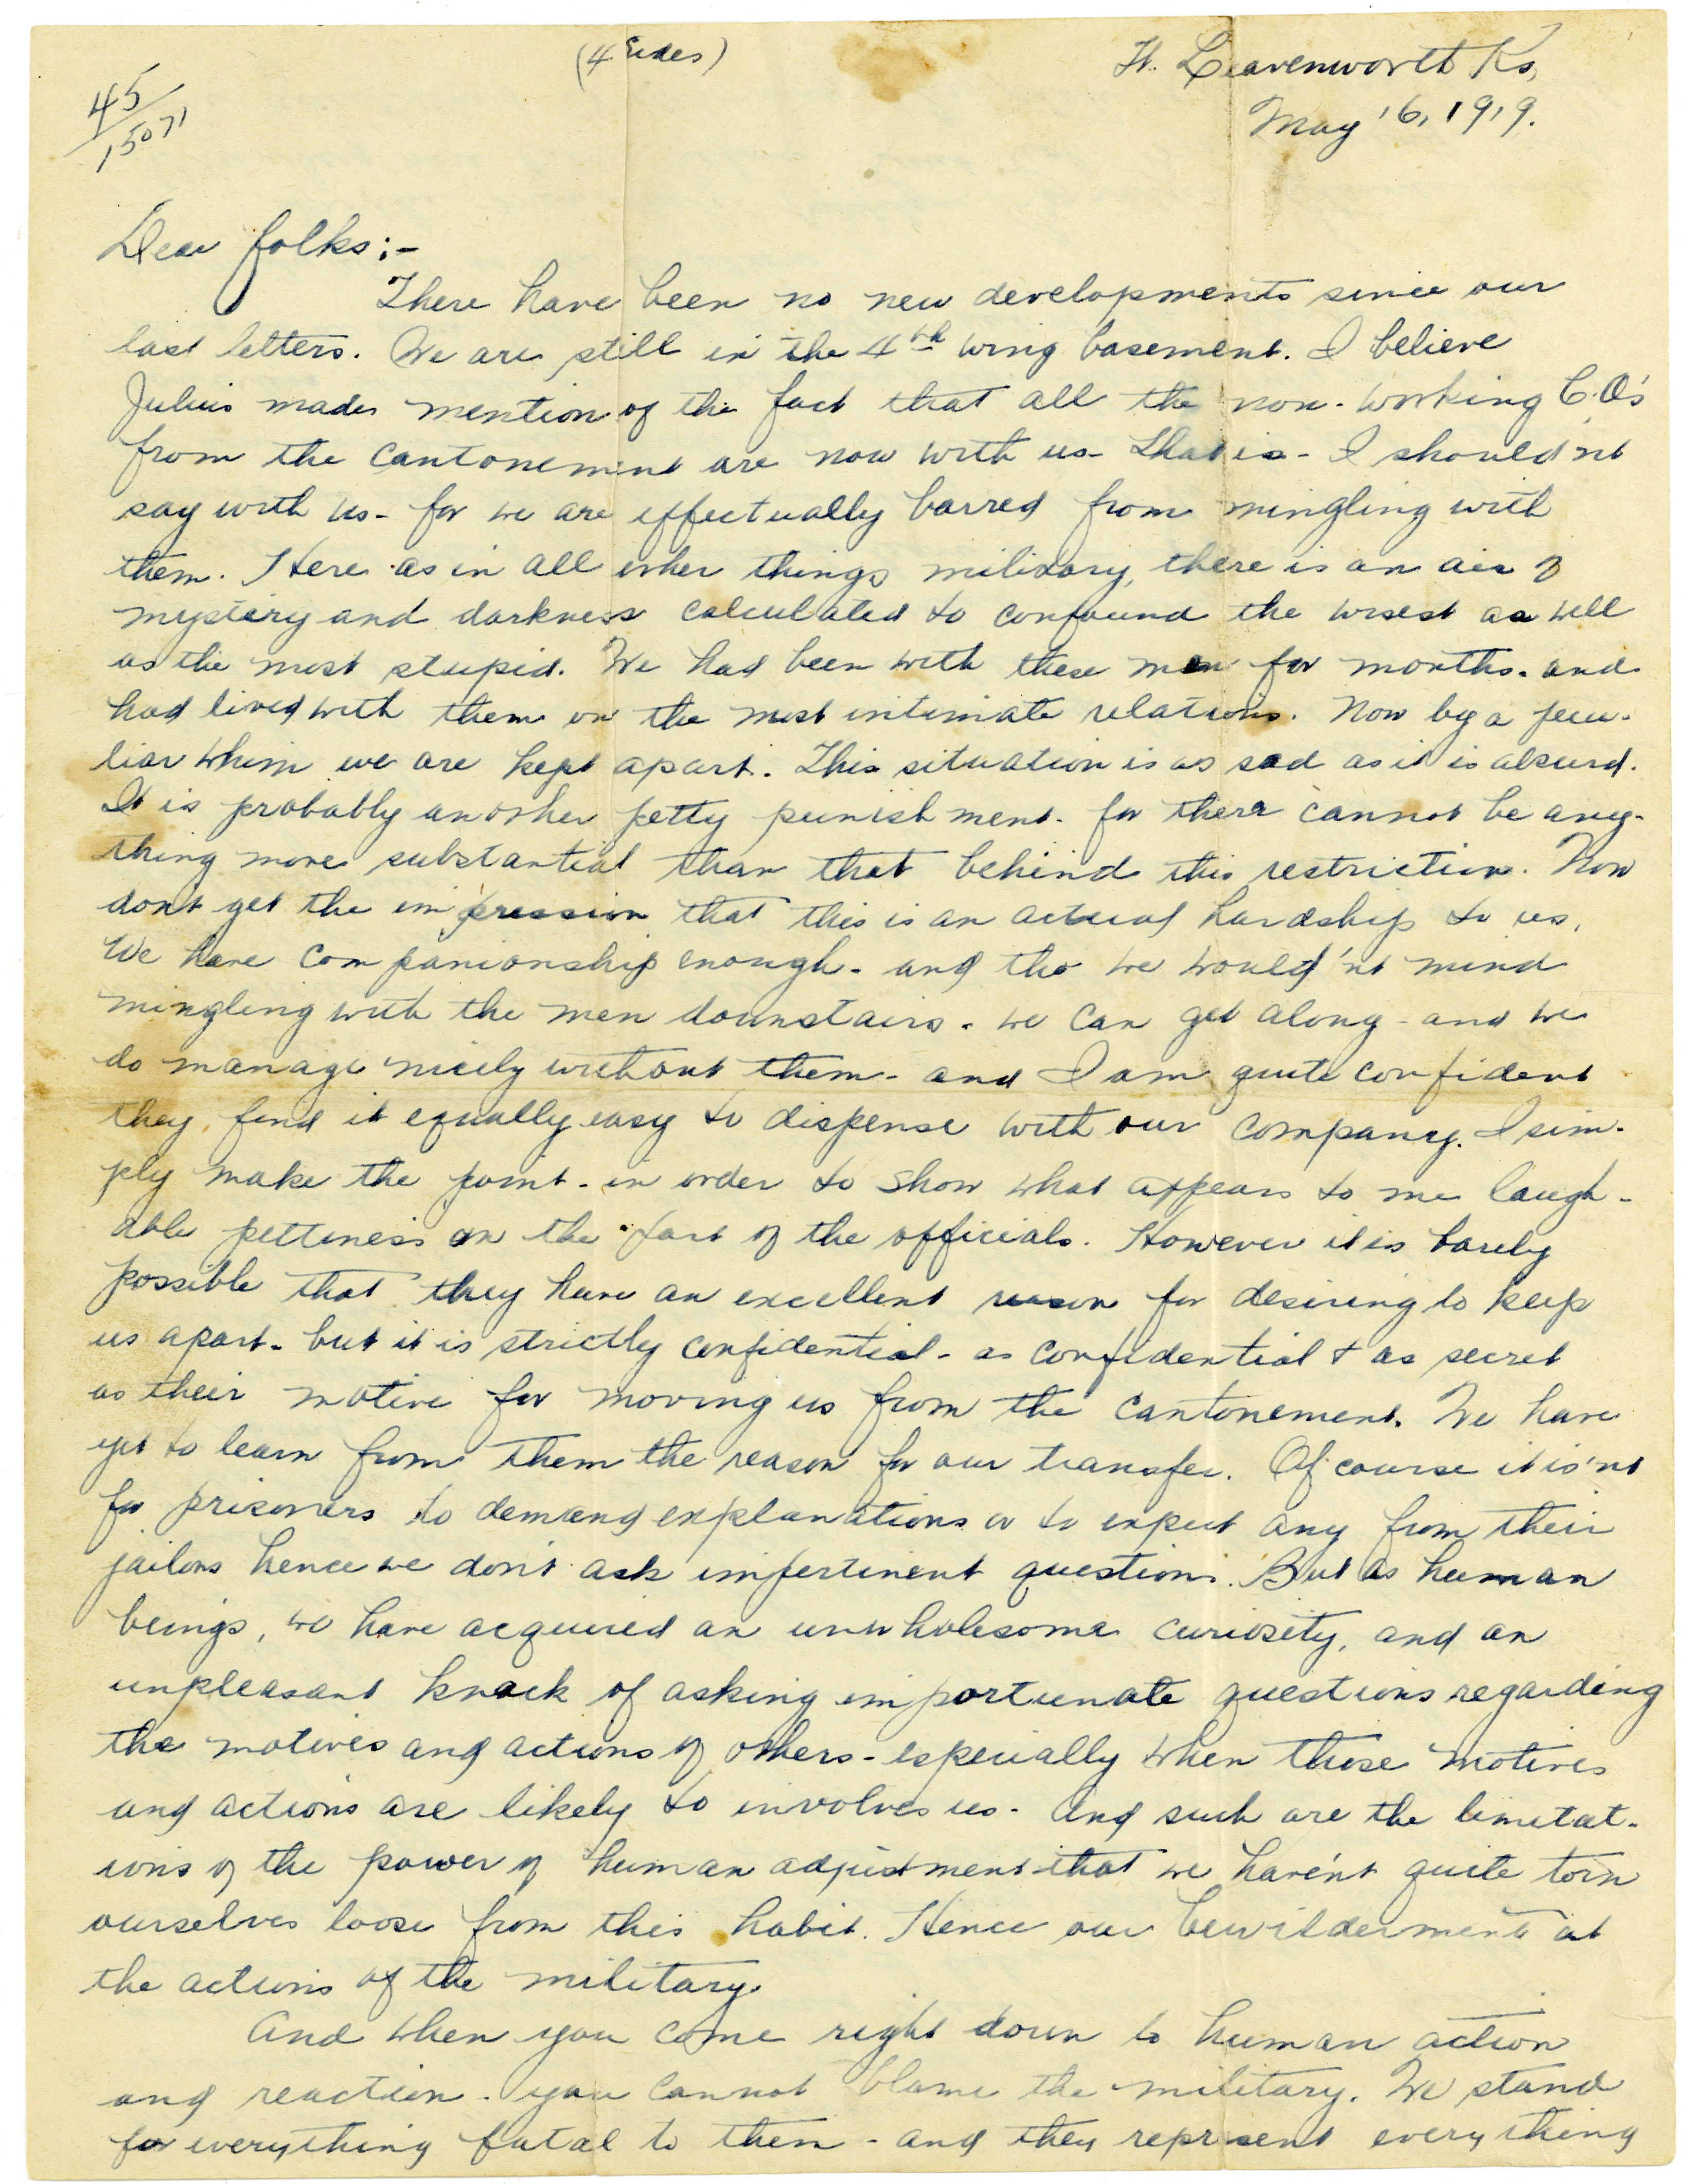 (4 sides)
Ft. Leavenworth Ks,
May 16, 1919.
45/15071
Dear folks:-
There have been no new developments since our
last letters. We are still in the 4th wing basement. I believe
Julius made mention of the fact that all the non-working C.O's
from the cantonement are now with us- that is- I should'nt
say with us- for we are effectually barred from mingling with
them. Here as in all other things military, there is an air of
mystery and darkness calculated to confound the wisest as well
as the most stupid. We had been with these men for months- and
had lived with them on the most intimate relations. Now by a pecu-
liar whim we are kept apart. This situation is as sad as it is absurd.
It is probably another petty punishment- for there cannot be any-
thing more substantial than that behind this restriction. Now
dont get the impression that this is an actual hardship to us,
We have companionship enough- and tho we would'nt mind
mingling with the men downstairs- we can get along- and we
do manage nicely without them- and I am quite confident
they find it equally easy to dispense with our company. I sim-
ply make the point- in order to show what appears to me laugh-
able pettiness on the part of the officials. However it is barely
possible that they have an excellent reason for desiring to keep
us apart- but it is strictly confidential- as confidential & as secret
as their motive for moving us from the cantonement. We have
yet to learn from them the reason for our transfer. Of course it is'nt
for prisoners to demand explanations or to expect any from their
jailors hence we don't ask impertinent questions. But as human
beings, we have acquired an unwholesome curiosity, and an
unpleasant knack of asking importunate questions regarding
the motives and actions of others- especially when those motives
and actions are likely to involve us- And such are the limitat-
ions of the power of human adjustment that we haven't quite torn
ourselves loose from this habit. Hence our bewilderment at
the actions of the military.
And when you come right down to human action
and reaction- you cannot blame the military. We stand
for everything fatal to them- and they represent everything